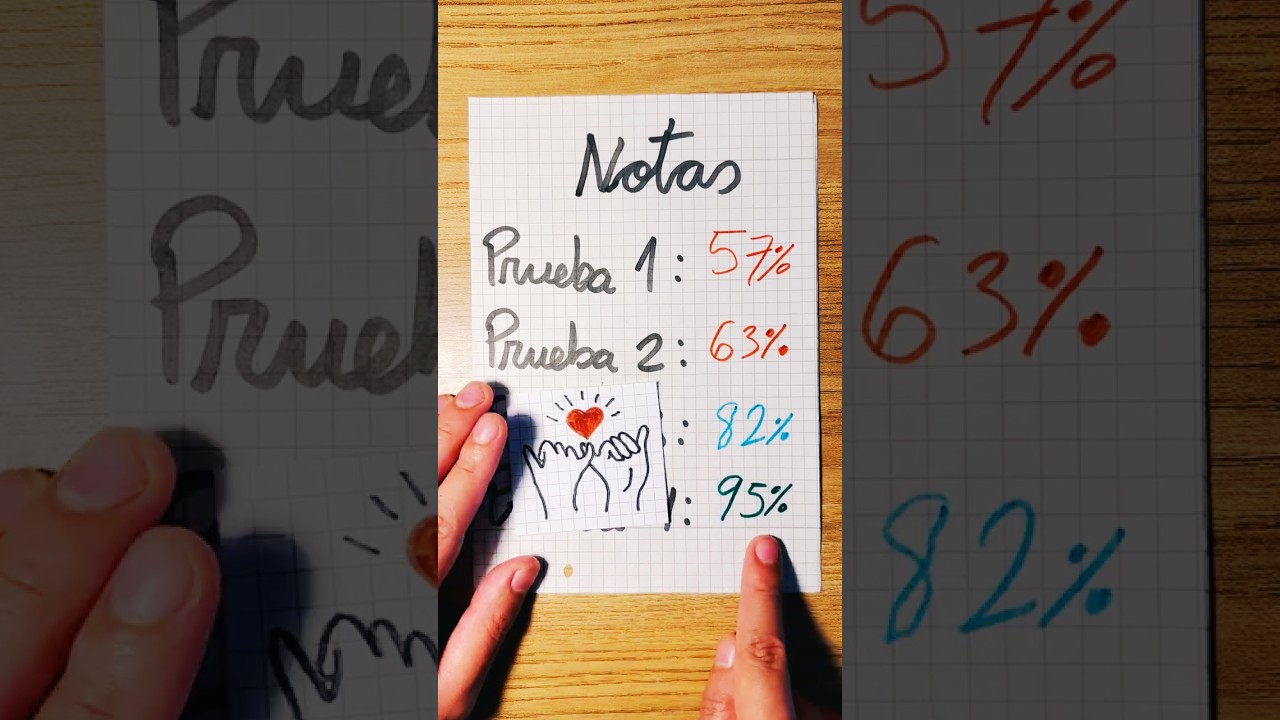 Notas
Prueba 1: 57%
Prueba 2: 63%
: 82%
: 95%